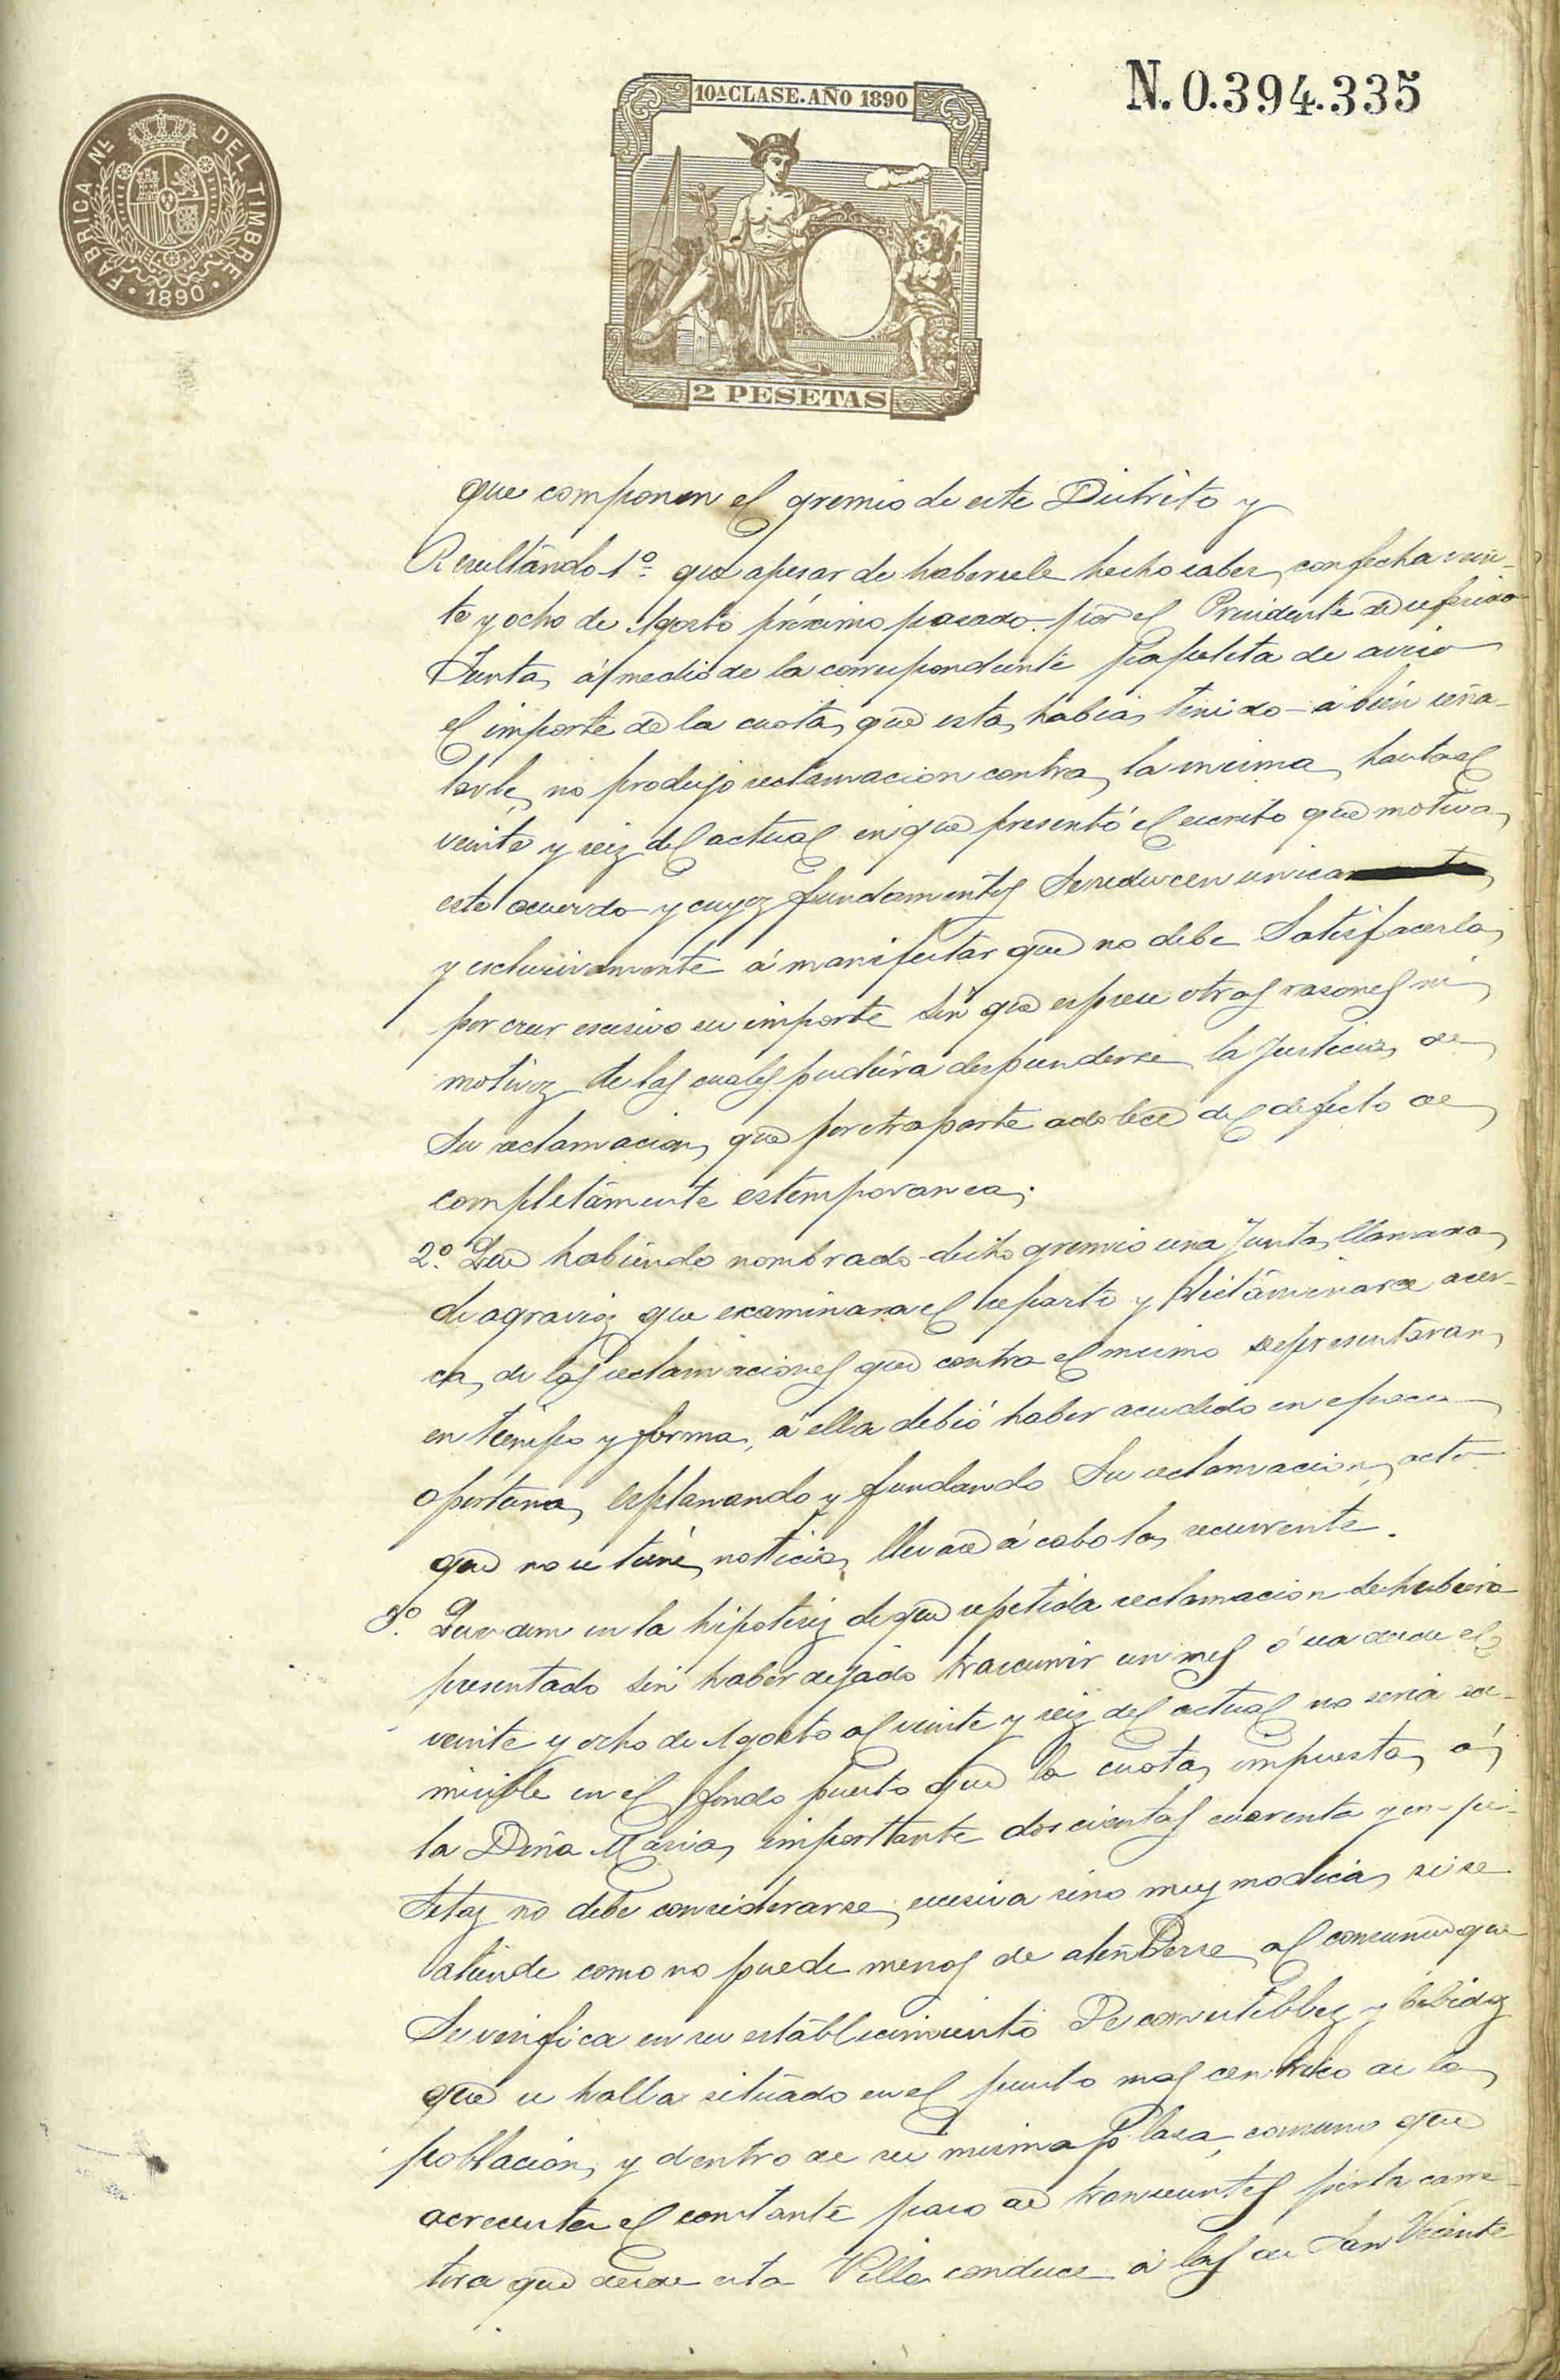 FABRICA NL. DEL TIMBRE
1890
10ª CLASE. AÑO 1890
2 PESETAS
N. 0.394.335
que componen el gremio de este Distrito y
Resultándo 1º que apesar de habersele hecho saber, con fecha vein-
te y ocho de Agosto próximo pasado por el Presidente de referida
Junta, á medio de la correspondiente papeleta de aviso
el importe de la cuota, que esta, habia, tenido á bien seña-
larle, no produjo reclamacion contra, la misma, hasta el
veinte y seiz del actual en que presentó el escrito que motiva,
este acuerdo y cuyoz fundamentos se reducen unica
y esclusivamente á manifestar que no debe satisfacerla,
por creer escesivo su importe sin que esprese otras rasones ni
motivoz de las cuales pudiera despenderse la justicia, de
su reclamacion, que por otra parte adolece del defecto de
completámente estemporanea;
2º Que habiendo nombrado dicho gremio una Junta, llamada,
de agravioz que examinara el reparto y dictáminara acer-
ca, de las reclamaciones que contra el mismo se presentaran,
en tiempo y forma, á ella debió haber acudido en epoca
oportuna, esplanando y fundando su reclamacion, acto
que no se tiene noticia, llevase á cabo la, recurrente.
3º Que aun en la hipotesiz de que repetida reclamacion se hubiera
presentado sin haber dejado trascurrir un mes ó sea desde el
veinte y ocho de Agosto al veinte y seiz del actual no seria ad-
misible en el fondo puesto que la cuota, impuesta, á,
la Dña Maria, importante doscientas cuarenta y un pe-
setaz no debe considerarse, escesiva sino muy modica, si se
atiende como no puede menos de atenderse, al consumo que
se verifica en su establecimiento de comestiblez y bebidaz
que se halla situado en el punto mas centrico de la,
poblacion, y dentro de su misma plasa, consumo que
acrecienta el constante paso de transeuntes por la carre-
tera que desde esta Villa conduce á las de San Vicente